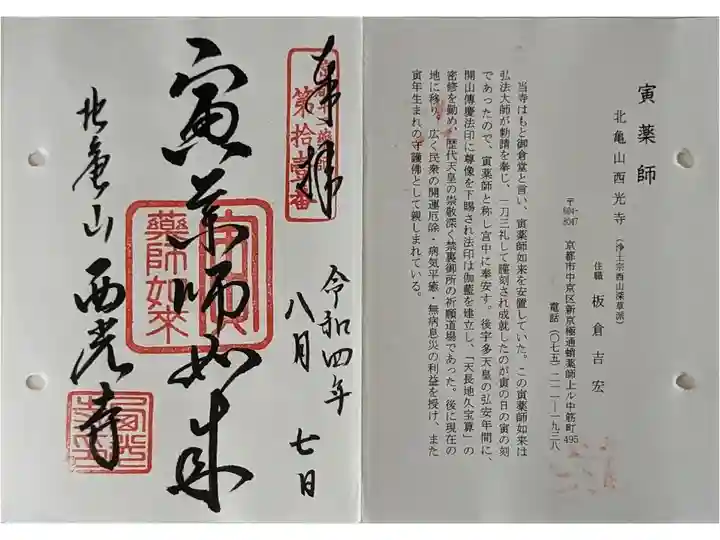 奉拝
第拾壹番
令和四年
八月 七日
寅薬師如来
薬師如来
北亀山 西光寺
寅薬師
北亀山西光寺(浄土宗西山深草派)
住職 板倉吉宏
〒604-8047 京都市中京区新京極通蛸薬師上ル中筋町495
電話(〇七五)二一一―一九三八
当寺はもと御倉堂と言い、寅薬師如来を安置していた。この寅薬師如来は
弘法大師が勅請を奉じ、一刀三礼して謹刻され成就したのが寅の日の寅の刻
であったので、寅薬師と称し宮中に奉安す。後宇多天皇の弘安年間に、
開山傳慶法印に尊像を下賜され法印は伽藍を建立し、「天長地久宝算」の
密修を勤め、歴代天皇の崇敬深く禁裏御所の祈願道場であった。後に現在の
地に移り、広く民衆の開運厄除・病気平癒・無病息災の利益を授け、また
寅年生まれの守護佛として親しまれている。